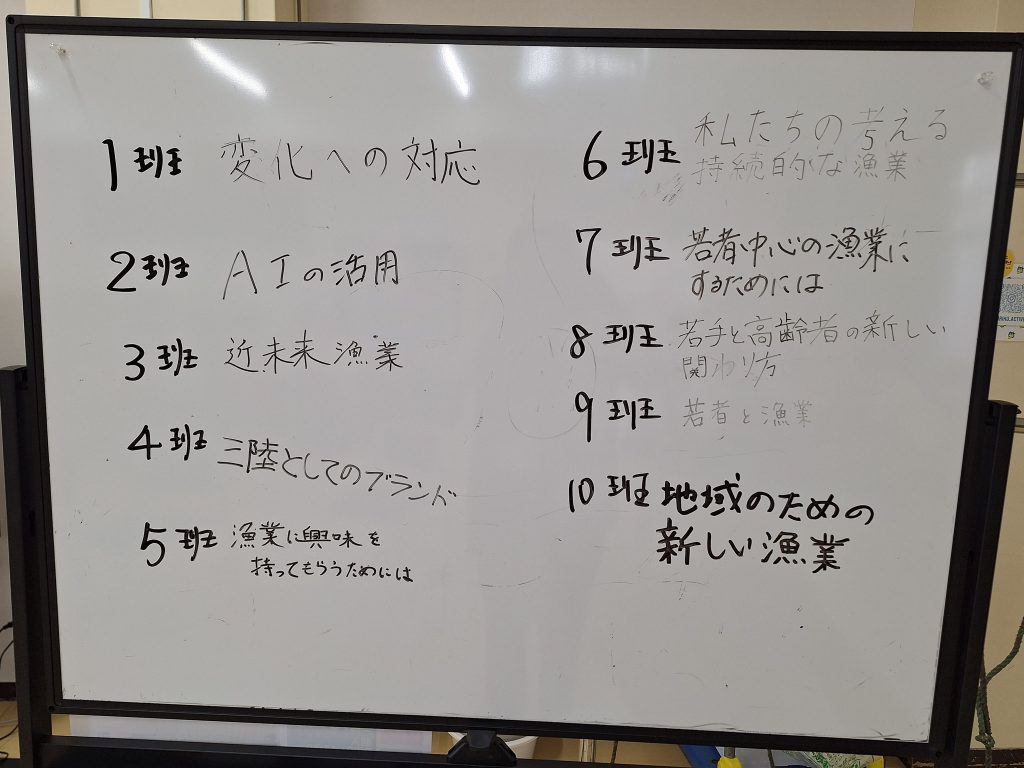 1班 変化への対応
2班 AIの活用
3班 近未来漁業
4班 三陸としてのブランド
5班 漁業に興味を
持ってもらうためには
6班 私たちの考える
持続的な漁業
7班 若者中心の漁業に
するためには
8班 若手と高齢者の新しい
関わり方
9班 若者と漁業
10班 地域のための
新しい漁業